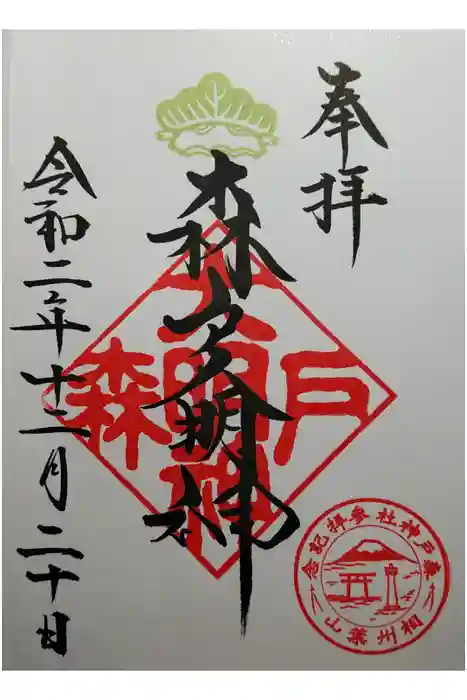 奉拝
森戸大明神
森戸大明神
令和二年十二月二十日
森戸神社参拝記念
相州葉山